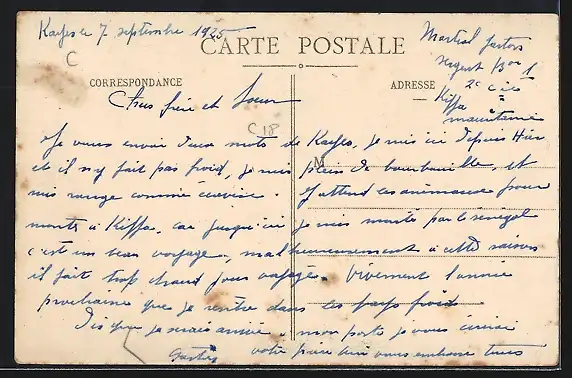 Kayes le 7 septembre 1925
CARTE POSTALE
Martial
sergent 1
2e Cie
Kiffa
mauritanie
C
CORRESPONDANCE
ADRESSE
Cher frère et Soeur
C18
Je vous envoi deux mots de Kayes, je suis ici depuis Hier
et il n'y fait pas froid, je suis plein de bourbouille, et
suis rouge comme écrevisse. J'attend les animaux pour
monté à Kiffa, car jusqu'ici je suis monté par le sénégal
c'est un beau voyage, malheureusement à cette saison
il fait trop chaud pour voyagé. Vivement l'année
prochaine que je rentre dans les pays froid
Dis que je suis arrivé, mon porto je vous écrirai
votre frère qui vous embrasse tous